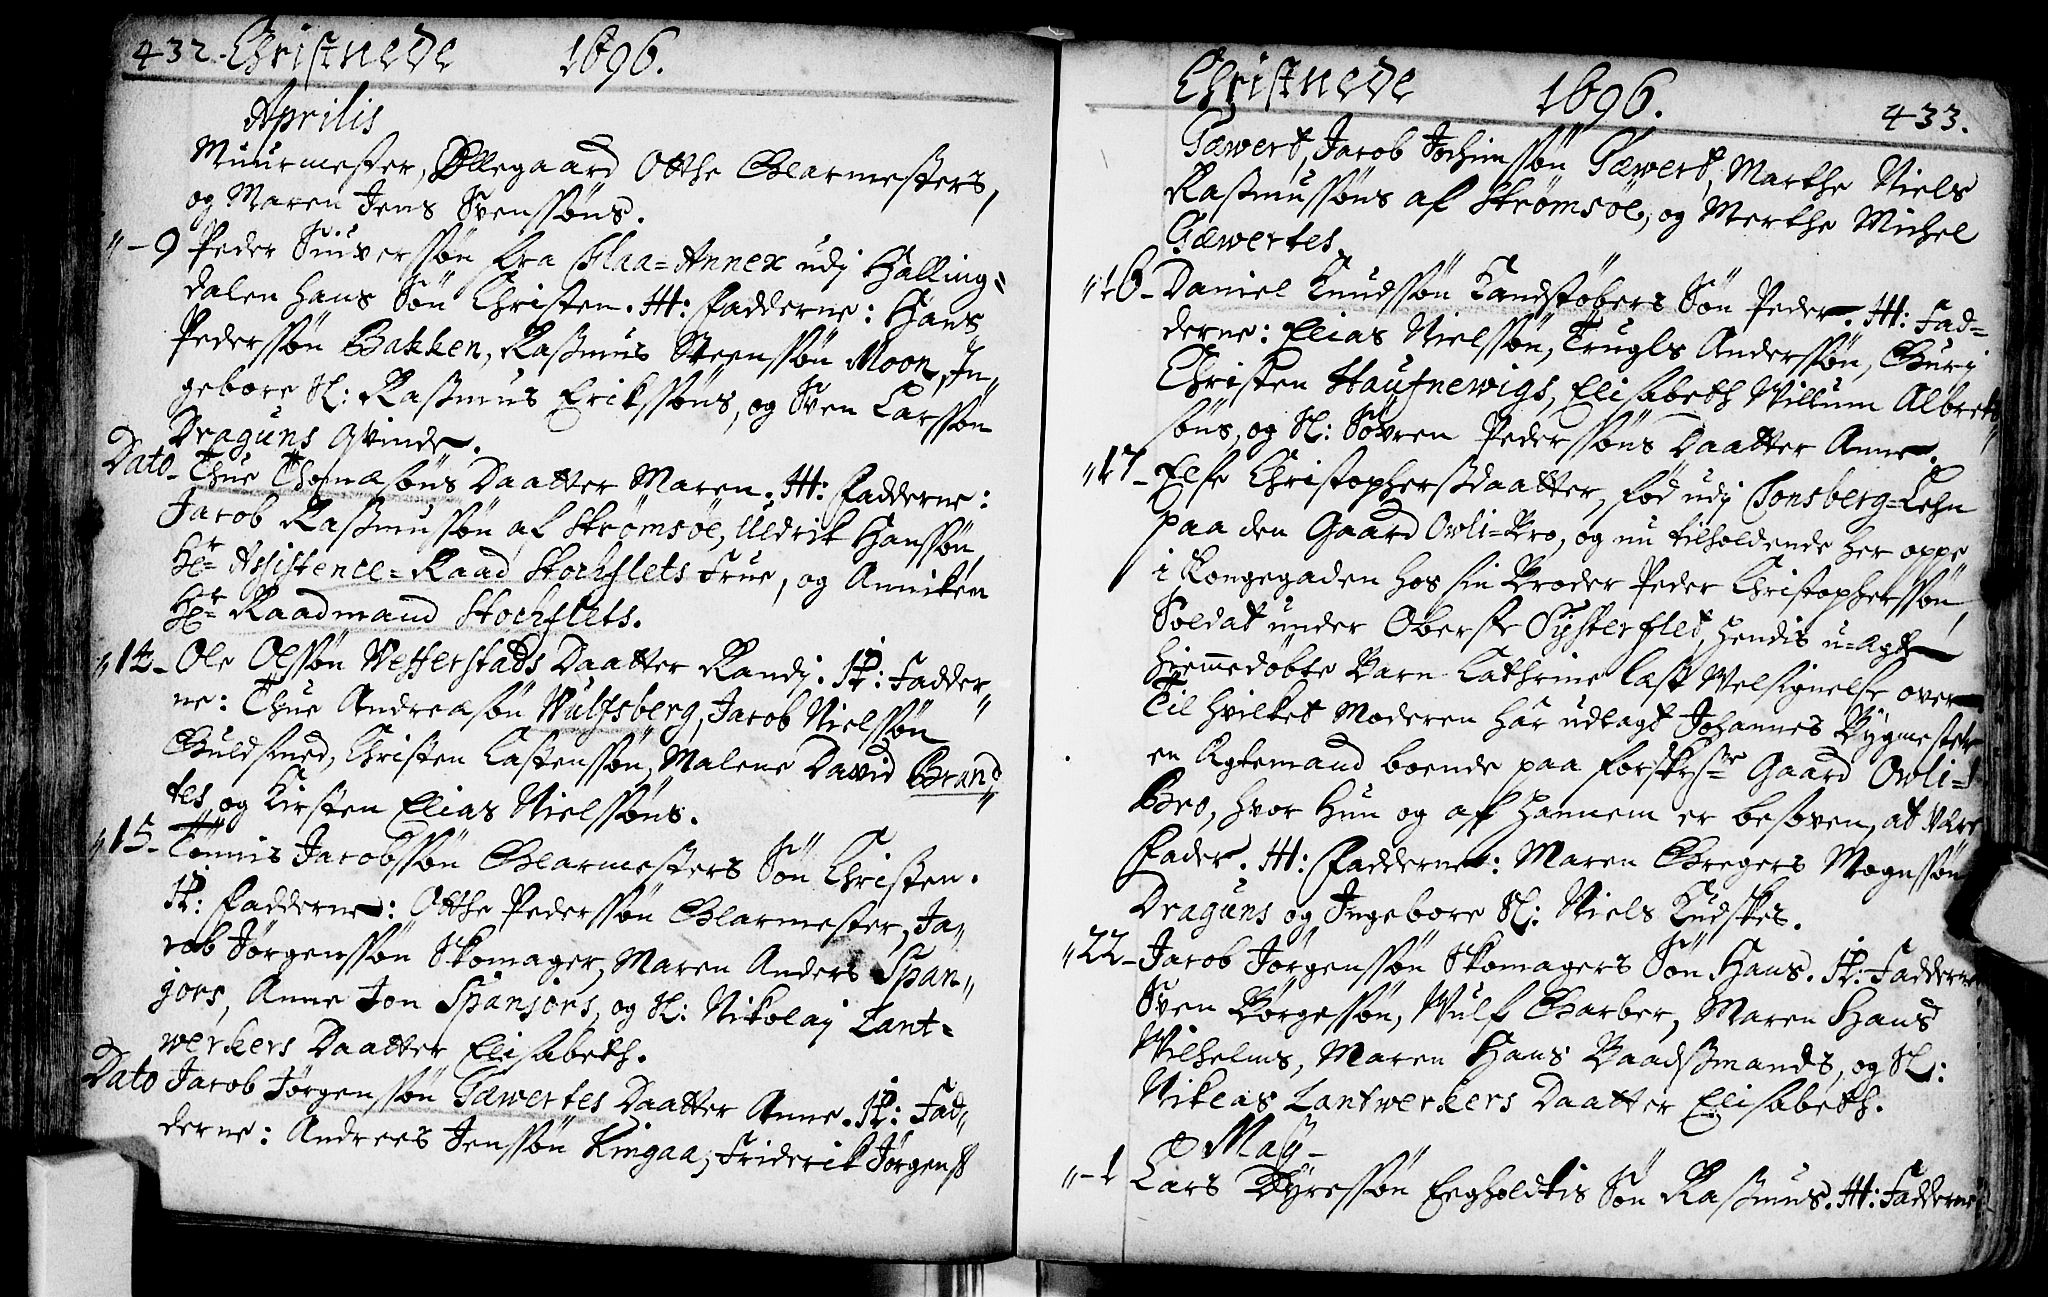 432. Christnede 1696.
Aprilis
Muurmester, Ollegaard Otthe Glarmesters,
og Maren Jens Svenssøns.
"-9 Peder Siüverssøn fra Flaa=Annex udj Halling=
dalen hans Søn Christen. H: Fadderne: Hans
Pederssøn Bakken, Rasmus Steenssøn Moon, In=
gebore Sl: Rasmus Erikssøns, og Sven Larssøn
Draguns Qvinde.
Dato- Thue Thomæsøns Daatter Maren. H: Fadderne:
Jacob Rasmussøn af Strømsøe, Uldrik Hanssøn,
Hr Assistence=Raad Stochflets Frue, og Anniken
Hr Raadmand Stochflets.
"14- Ole Olssøn Vefferstads Daatter Randj. H: Fadder"
ne: Thue Andreasøn Wulfsberg, Jacob Nielssøn
Guldsmed, Christen Castenssøn, Malene David Brand"
tes, og Kirsten Elias Nielssøns.
"15- Tønnis Jacobssøn Glarmesters Søn Christen.
H: Fadderne: Otthe Pederssøn Glarmester, Ja"
cob Jørgenssøn Skomager, Maren Anders Span"
jors, Anne Jon Spanjors, og Sl: Nikolaij Lant=
werkers Daatter Elisabeth.
Dato Jacob Jørgenssøn Tæwertes Daatter Anne. H: Fad"
derne: Andrees Jenssøn Kingaa, Friderik Jørgens
Christnede 1696. 433.
Tæwert, Jacob Jochimssøn Tæwert, Marthe Niels
Rasmussøns af Strømsøe, og Merthe Michel
Tæwertes.
"16- Daniel Knudssøn Kandstøbers Søn Peder. H: Fad=
derne: Elias Nielssøn, Trugls Anderssøn, Gurj
Christen Haufnewigs, Elisabeth Willum Albrekt"
søns, og Sl: Søvren Pederssøns Daatter Anne.
"17- Else Christophersdaatter, fød udj Tonsberg=Lehn
paa den Gaard Orli=Bro, og nu tilholdende her oppe
i Kongegaden hos sin Broder Peder Christopherssøn,
Soldat under Oberste Systerflet, hendis u-Agte
hjemmedøbte Barn Cathrine læst Welsignelse over.
Til hvilket Moderen har udlagt Johannes Bygmester
en Agtemand boende paa forskrefne Gaard Orli=
Bro, hvor hun og af hannem er besoven, at være
Fader. H: Fadderne: Maren Gregers Mognssøn
Draguns og Ingebore Sl: Niels Kudskes.
"22- Jacob Jørgenssøn Skomagers Søn Hans. H: Fadderne
Sven Børgessøn, Wulf Barber, Maren Hans
Wilhelms, Maren Hans Baadsmands, og Sl:
Niklas Lantwerkers Daatter Elisabeth.
Maij
"-1 Lars Dyressøn Eegholdtis Søn Rasmus. H: Fadderne: